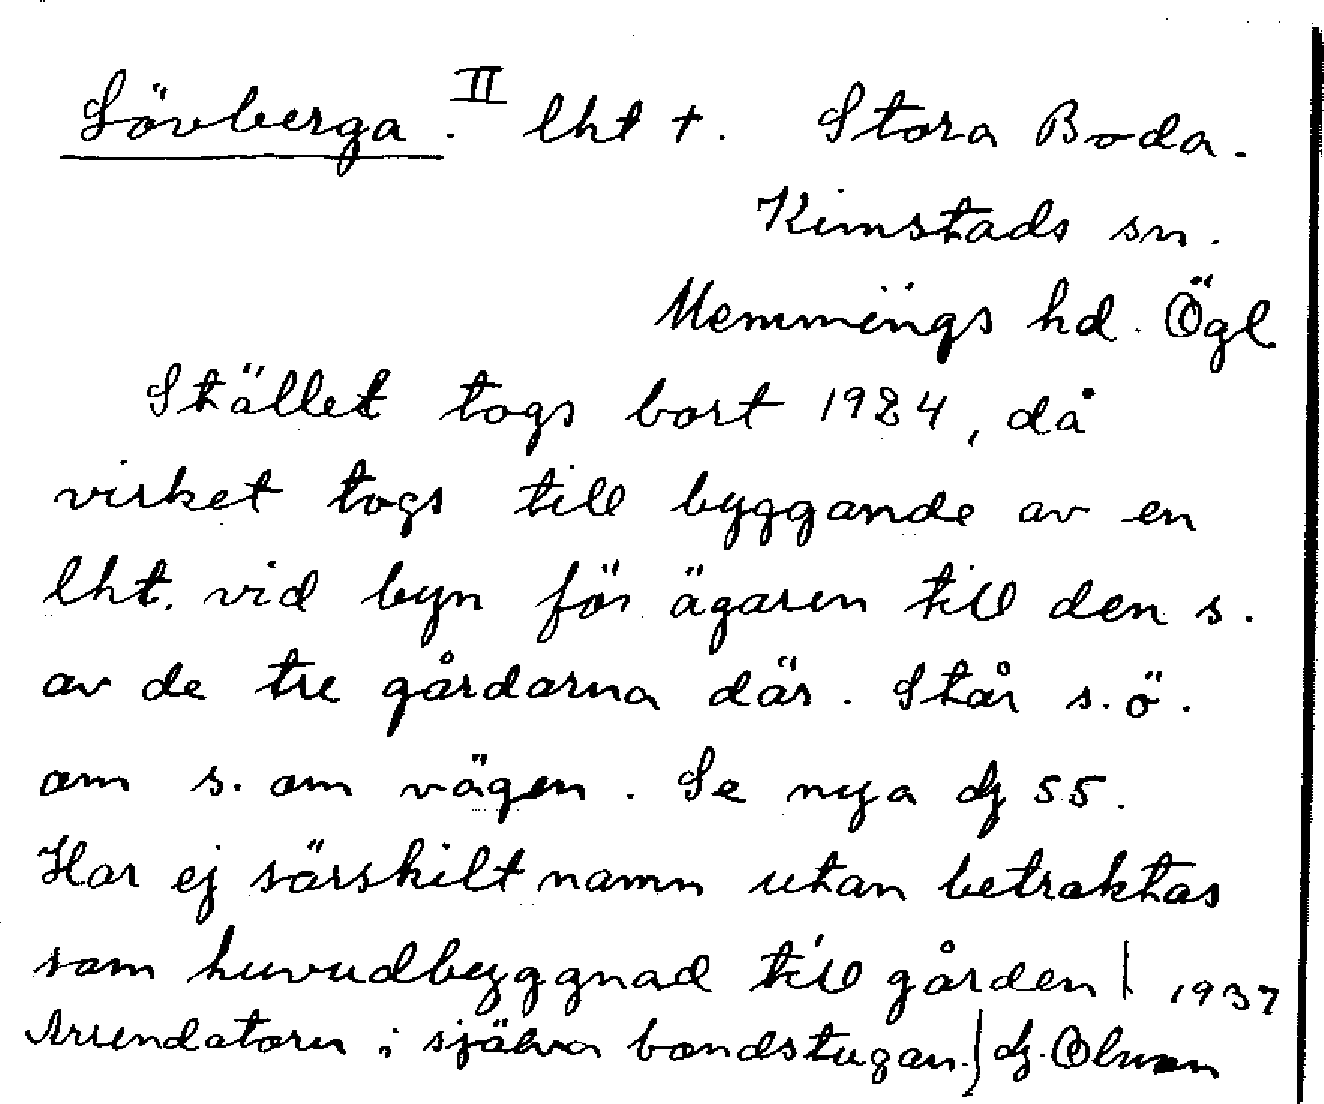 Lövberga. II lht +. Stora Boda.
Kimstads sn.
Memmings hd. Ögl
Stället togs bort 1924, då
virket togs till byggande av en
lht. vid byn för ägaren till den s.
av de tre gårdarna där. Står s.ö.
om s. om vägen. Se nya 55.
Har ej särskilt namn utan betraktas
som huvudbyggnad till gården | 1937
Arrendatorn i själva bondstugan.)